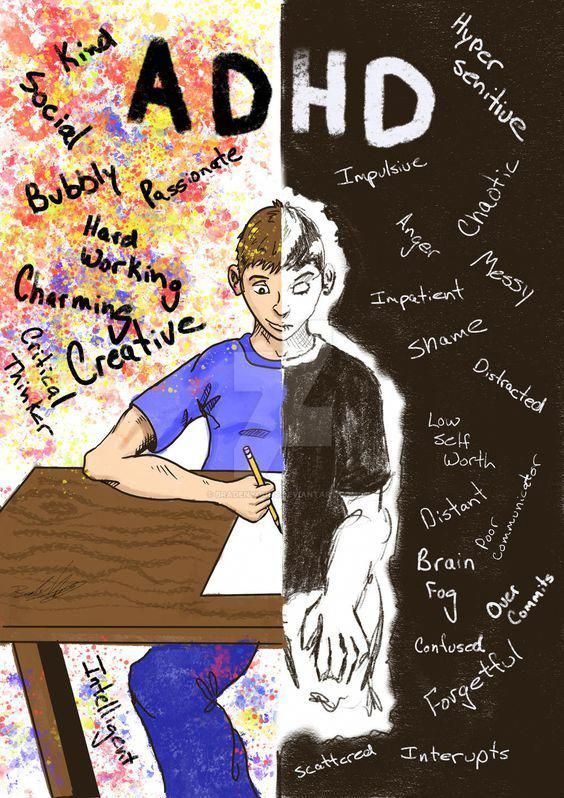 ADHD
Kind
Social
Bubbly
Passionate
Hard
Working
Charming
Creative
Critical
Thinker
Intelligent
Hyper
senitive
Impulsive
Chaotic
Anger
Messy
Impatient
Shame
Distracted
Low
Self
Worth
Distant
Poor
Communicator
Brain
Fog
Over
Commits
Confused
Forgetful
Scattered
Interupts